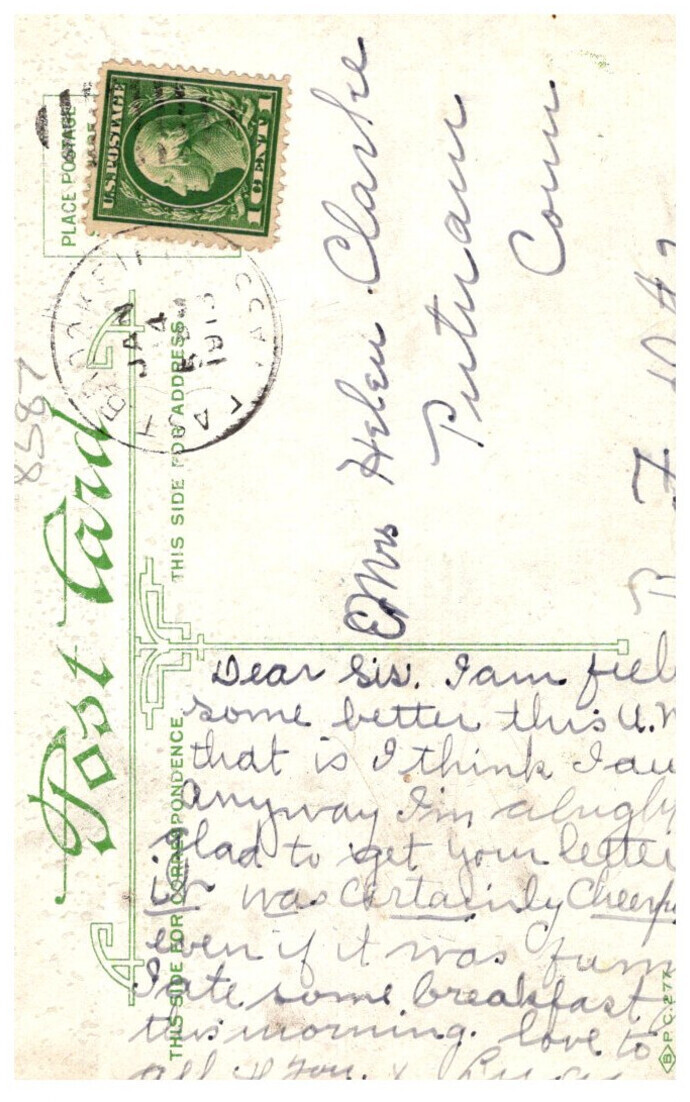 PLACE POSTAGE
U.S. POSTAGE
1 CENT 1
JAN
4
1915
8587
Post Card
THIS SIDE FOR CORRESPONDENCE
THIS SIDE FOR ADDRESS
Mrs Helen Clarke
Putnam
Conn
R F D #2
Dear Sis. I am feel
some better this a.m
that is I think I am
Anyway I'm
glad to get your letter
it was certainly Cheerfu
even if it was
I ate some breakfast
this morning. love to
all of you.
B P. C. 277